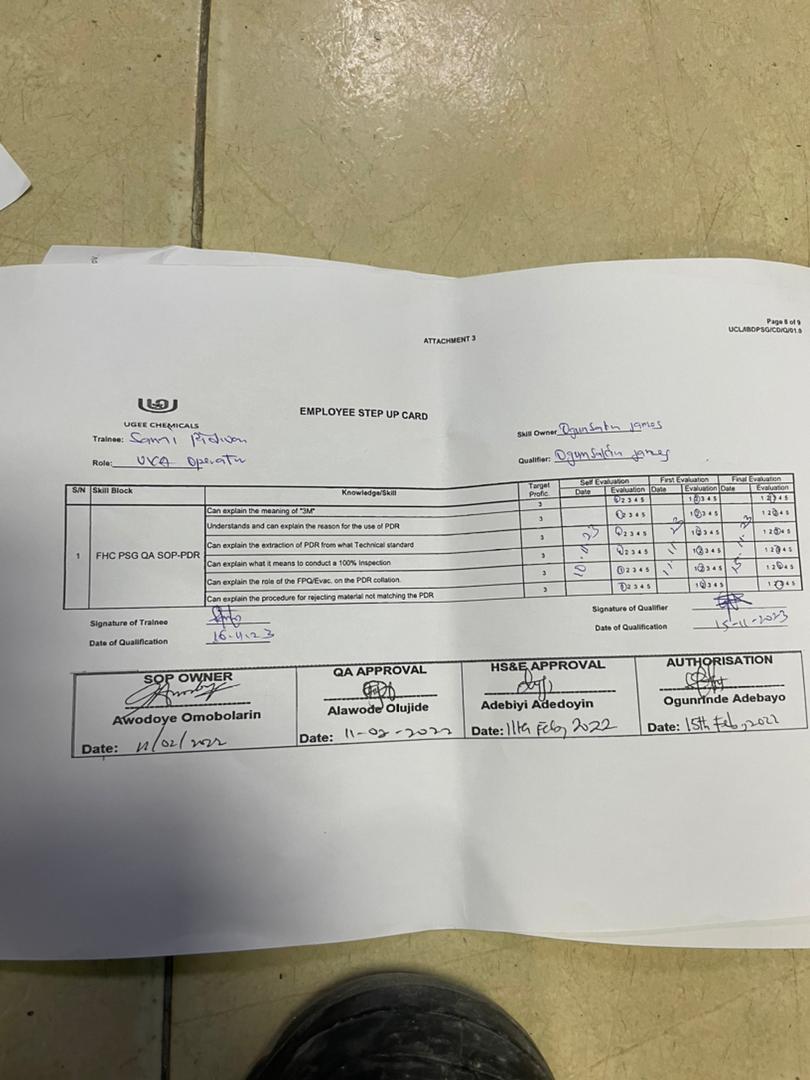 Page 8 of 9
UCL/IBDPSG/CD/Q/01.9
ATTACHMENT 3
UGEE CHEMICALS
EMPLOYEE STEP UP CARD
Trainee: Sanni
Skill Owner Ogunsakin James
Role: Operator
Qualifier: Ogunsakin James
S/N Skill Block Knowledge/Skill Target Profic. Self Evaluation First Evaluation Final Evaluation
Date Evaluation Date Evaluation Date Evaluation
1 FHC PSG QA SOP-PDR
Can explain the meaning of "3M" 3 1 2 3 4 5 1 2 3 4 5 1 2 3 4 5
Understands and can explain the reason for the use of PDR 3 1 2 3 4 5 1 2 3 4 5 1 2 3 4 5
Can explain the extraction of PDR from what Technical standard 3 1 2 3 4 5 1 2 3 4 5 1 2 3 4 5
Can explain what it means to conduct a 100% Inspection 3 1 2 3 4 5 1 2 3 4 5 1 2 3 4 5
Can explain the role of the FPQ/Evac. on the PDR collation. 3 1 2 3 4 5 1 2 3 4 5 1 2 3 4 5
Can explain the procedure for rejecting material not matching the PDR 3 1 2 3 4 5 1 2 3 4 5 1 2 3 4 5
Signature of Trainee
Signature of Qualifier
Date of Qualification 16.11.23
Date of Qualification 15-11-2023
SOP OWNER QA APPROVAL HS&E APPROVAL AUTHORISATION
Awodoye Omobolarin Alawode Olujide Adebiyi Adedoyin Ogunrinde Adebayo
Date: 11/02/2022 Date: 11-02-2022 Date: 11th Feb, 2022 Date: 15th Feb, 2022